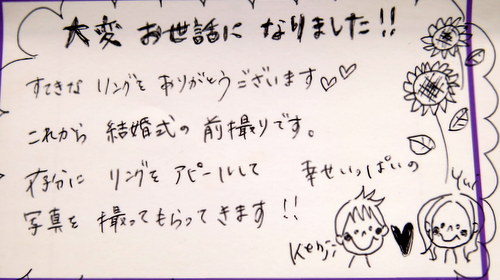 大変 お世話に なりました!!
すてきな リングを ありがとうございます♡♡
これから 結婚式の 前撮りです。
存分に リングを アピールして
写真を 撮ってもらってきます !!
幸せいっぱいの
Kenji
Yui